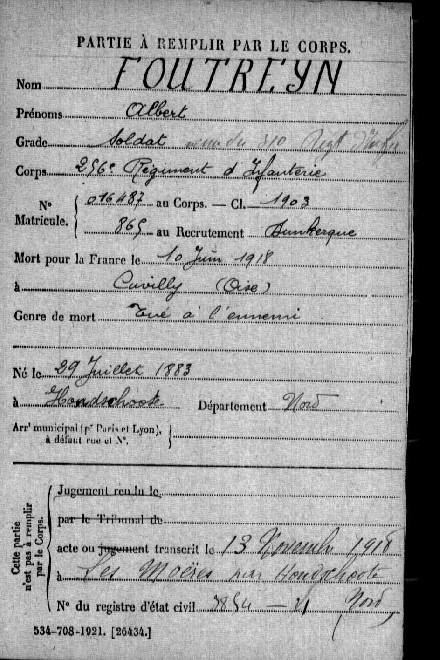 PARTIE À REMPLIR PAR LE CORPS.
Nom FOUTREYN
Prénoms Albert
Grade Soldat venu du 310 Régt d'Inf
Corps 256e Régiment d'Infanterie
N° Matricule. { 016487 au Corps. — Cl. 1903
865 au Recrutement Dunkerque
Mort pour la France le 10 Juin 1918
à Cuvilly (Oise)
Genre de mort Tué à l'ennemi
Né le 29 Juillet 1883
à Hondschook Département Nord
Arrt municipal (pr Paris et Lyon), à défaut rue et N°. }
Cette partie n'est pas à remplir par le Corps. {
Jugement rendu le
par le Tribunal de
acte ou jugement transcrit le 13 Novembre 1918
à Les Moëres par Hondschoote
N° du registre d'état civil (Nord)
534-708-1921. [26434.]